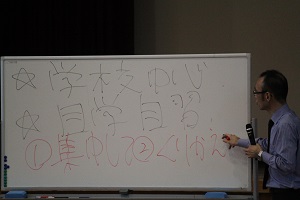 ☆ 学校中心
☆ 自学自習
①集中して②くりかえ